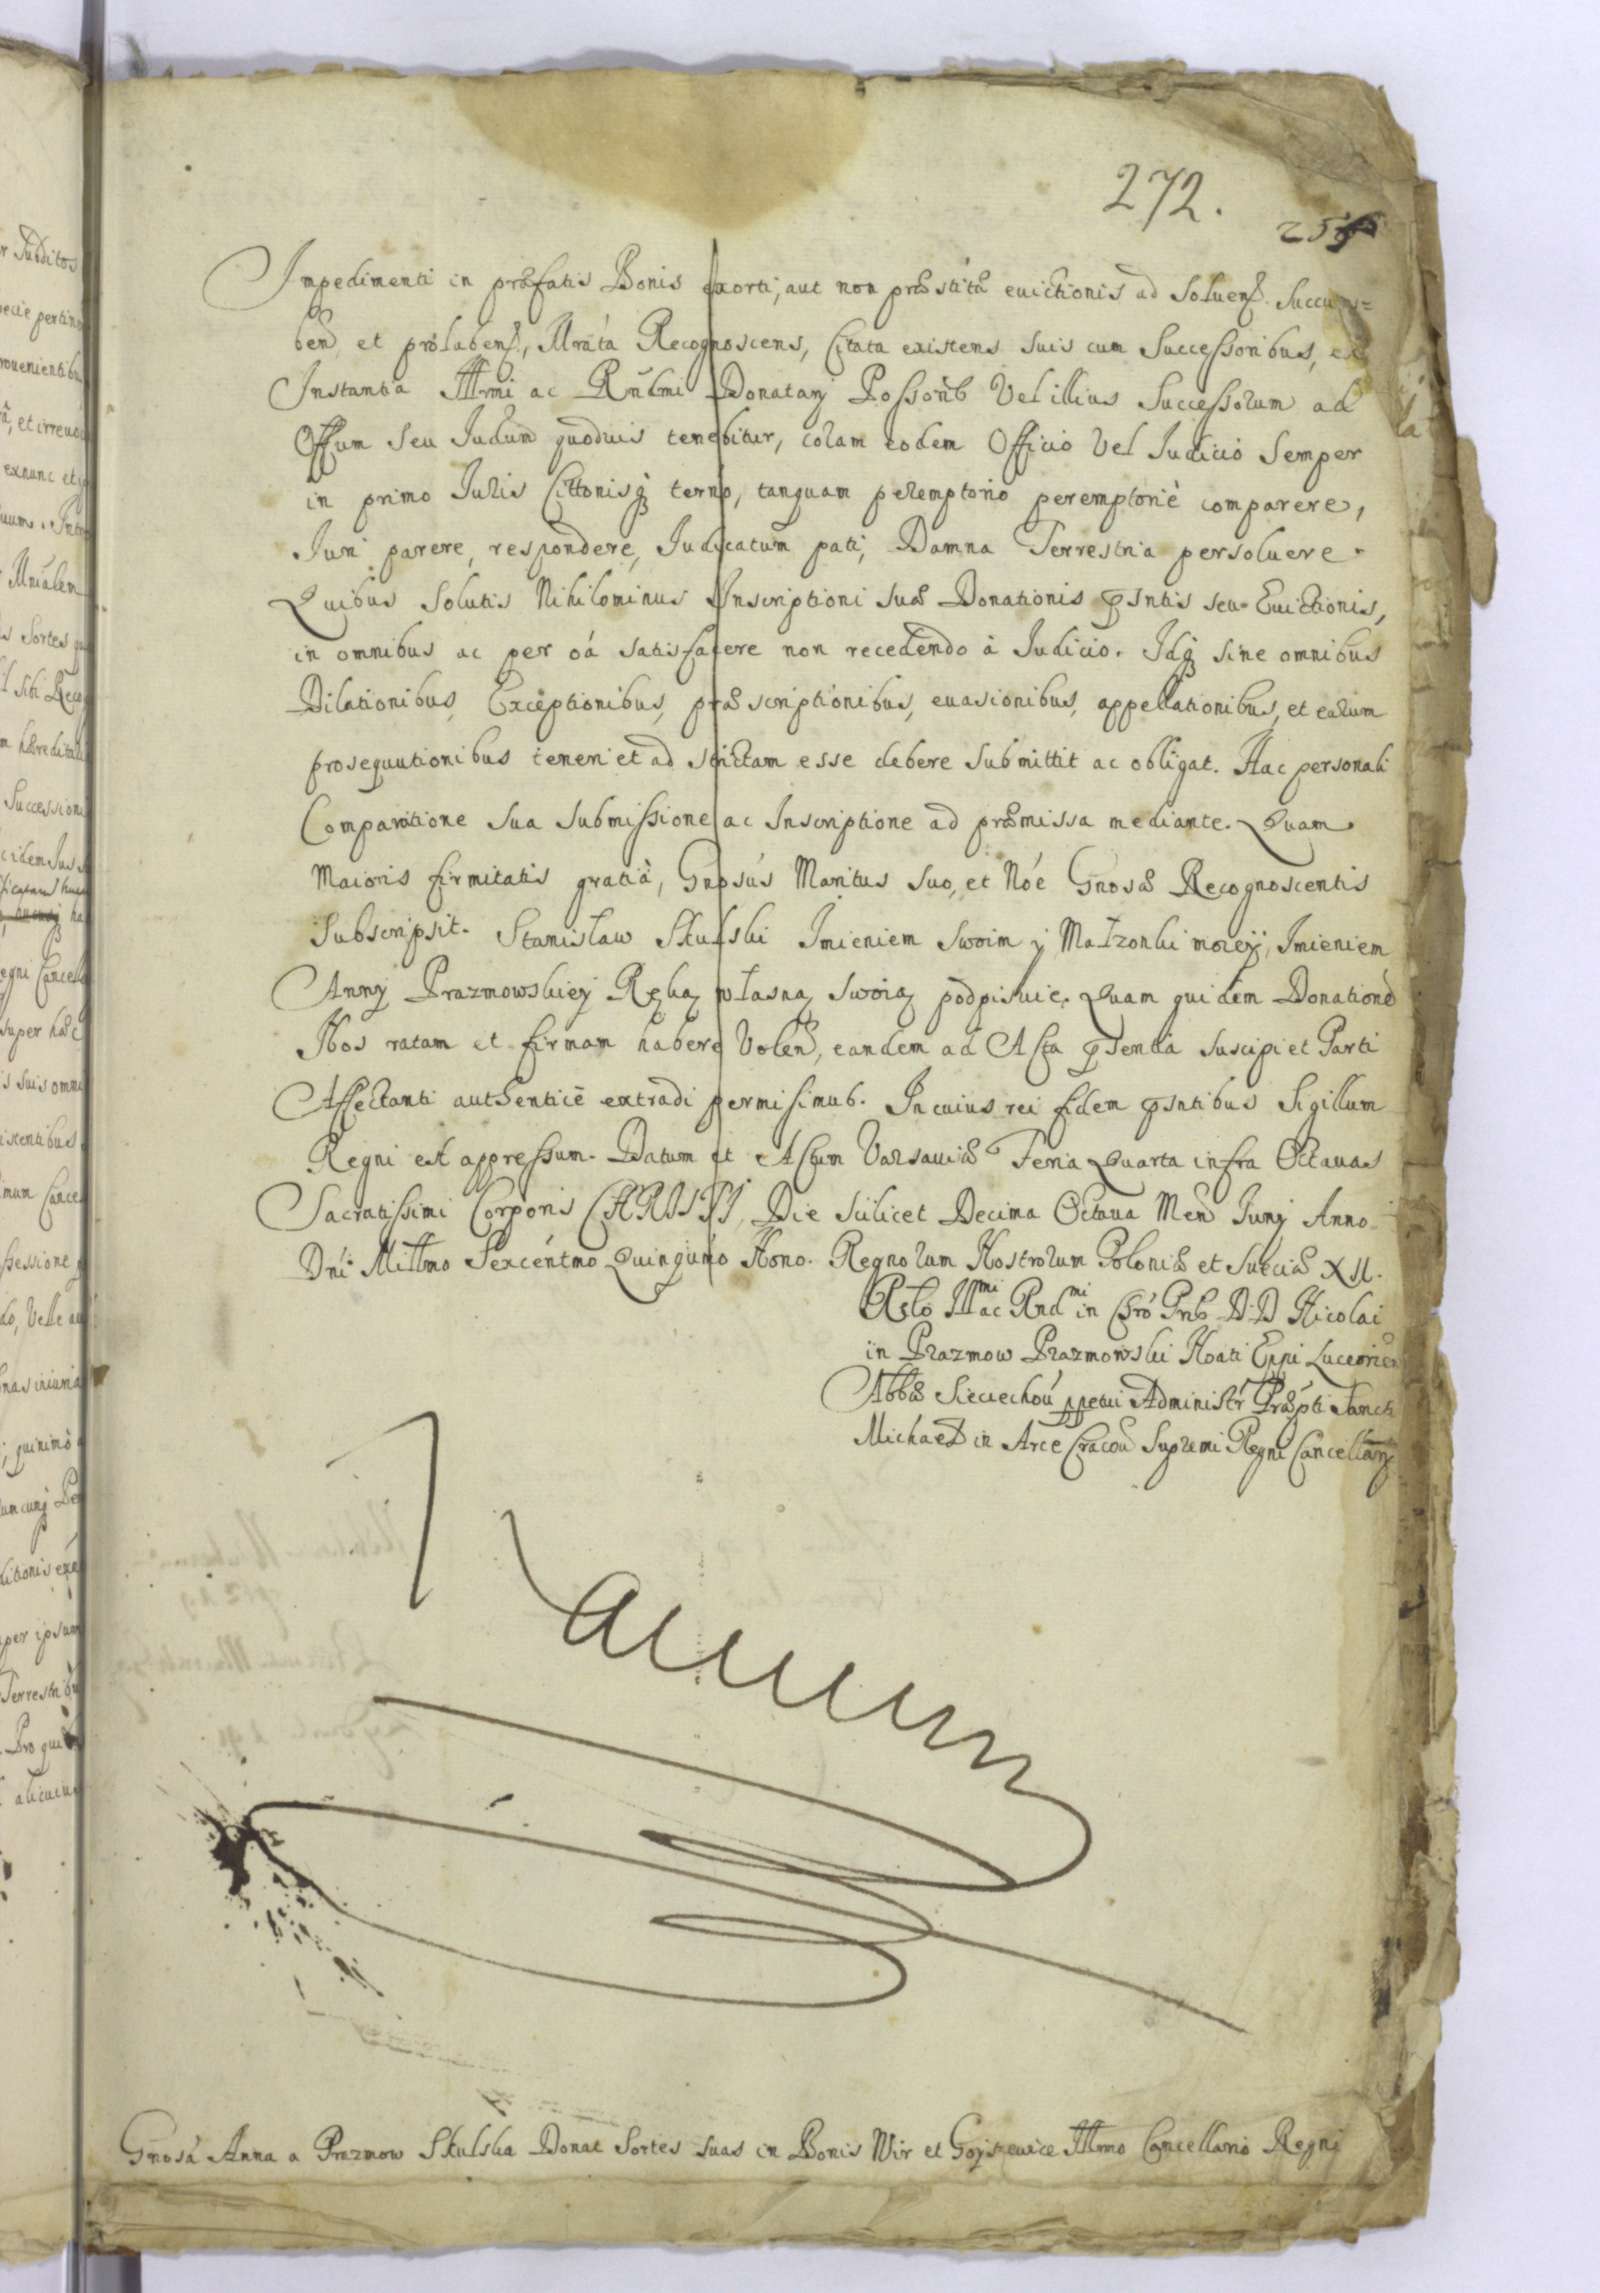 272.
25
Impedimenti in præfatis Bonis exorti, aut non præstitæ euictionis ad soluen. Succum=
ben et prolaben, Mrata Recognoscens, Citata existens suis cum Successoribus, ex
Instantia Illrmi ac Rndmi Donatarij Possorib Vel illius Successorum ad
Offum seu Judum quoduis tenebitur, coram eodem Officio Vel Judicio semper
in primo Juris Cittonisq termo, tanquam peremptorio peremptoriè comparere,
Juri parere, respondere, Judicatum pati, Damna Terrestria persoluere.
Quibus solutis Nihilominus Inscriptioni suæ Donationis pntis seu Euictionis,
in omnibus ac per oa satisfacere non recedendo à Judicio. Idq sine omnibus
Dilationibus, Exceptionibus, præscriptionibus, euasionibus, appellationibus, et earum
prosequutionibus teneri et ad strictam esse debere submittit ac obligat. Hac personali
Comparitione sua submissione ac Inscriptione ad præmissa mediante. Quam
Maioris firmitatis gratià, Gnosus Maritus suo, et Noe Gnosæ Recognoscentis
subscripsit. Stanisław Skulski Imieniem swoim y Małzonki moieÿ, Imieniem
Anny Prazmowskiey Ręką własną swoią podpisuie. Quam quidem Donatione
Nos ratam et firmam habere Volen, eandem ad Acta psentia suscipi et Parti
Affectanti authenticè extradi permisimus. In cuius rei fidem pntibus Sigillum
Regni est appressum. Datum et Actum Varsauiæ Feria Quarta infra Octauas
Sacratissimi Corporis CHRISTI, Die scilicet Decima Octaua Men Junij Anno
Dni Millmo Sexcentmo Quinqumo Nono. Regnorum Nostrorum Poloniæ et Sueciæ XII.
Relo Illmi ac Rndmi in Chro Prs D.D Nicolai
in Prazmow Prazmowski Noati Eppi Luceorien
Abbæ Sieciechou ppetui Administr Præpti Sancti
Michael in Arce Cracou Supremi Regni Cancellarij
Gnosa Anna a Prazmow Skulska Donat Sortes suas in Bonis Wir et Goyszewice Illmo Cancellario Regni